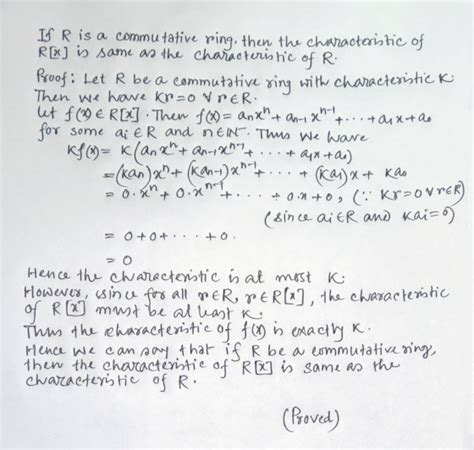 If R is a commutative ring, then the characteristic of
R[x] is same as the characteristic of R.
Proof: Let R be a commutative ring with characteristic K.
Then we have Kr=0 ∀ r∈R.
Let f(x) ∈ R[x]. Then f(x) = aₙxⁿ + aₙ₋₁xⁿ⁻¹ + ... + a₁x + a₀
for some aᵢ∈R and n∈ℕ. Thus we have
Kf(x) = K(aₙxⁿ + aₙ₋₁xⁿ⁻¹ + ... + a₁x + a₀)
= (Kaₙ)xⁿ + (Kaₙ₋₁)xⁿ⁻¹ + ... + (Ka₁)x + Ka₀
= 0·xⁿ + 0·xⁿ⁻¹ + ... + 0·x + 0, (∵ Kr=0 ∀ r∈R)
(since aᵢ∈R and Kaᵢ=0)
= 0+0+ ... +0.
= 0
Hence the characteristic is at most K.
However, since for all r∈R, r∈R[x], the characteristic
of R[x] must be at least K.
Thus the characteristic of f(x) is exactly K.
Hence we can say that if R be a commutative ring,
then the characteristic of R[x] is same as the
characteristic of R.
(Proved)